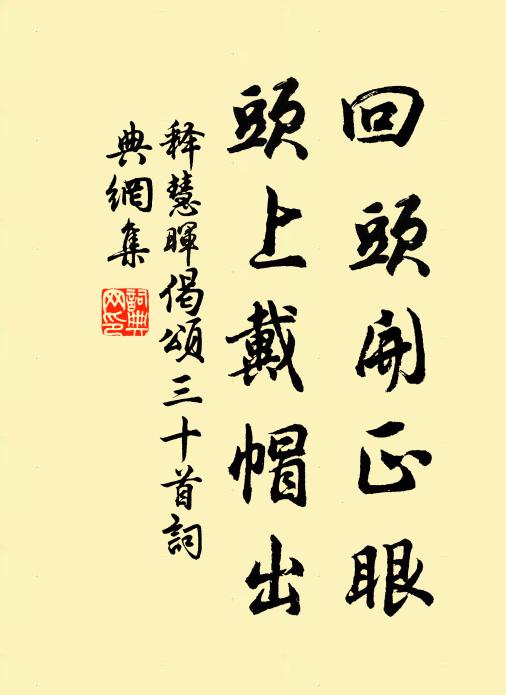 回頭開正眼
頭上戴帽出
釋慧暉偈頌三十首詞
典網集
詞典網印